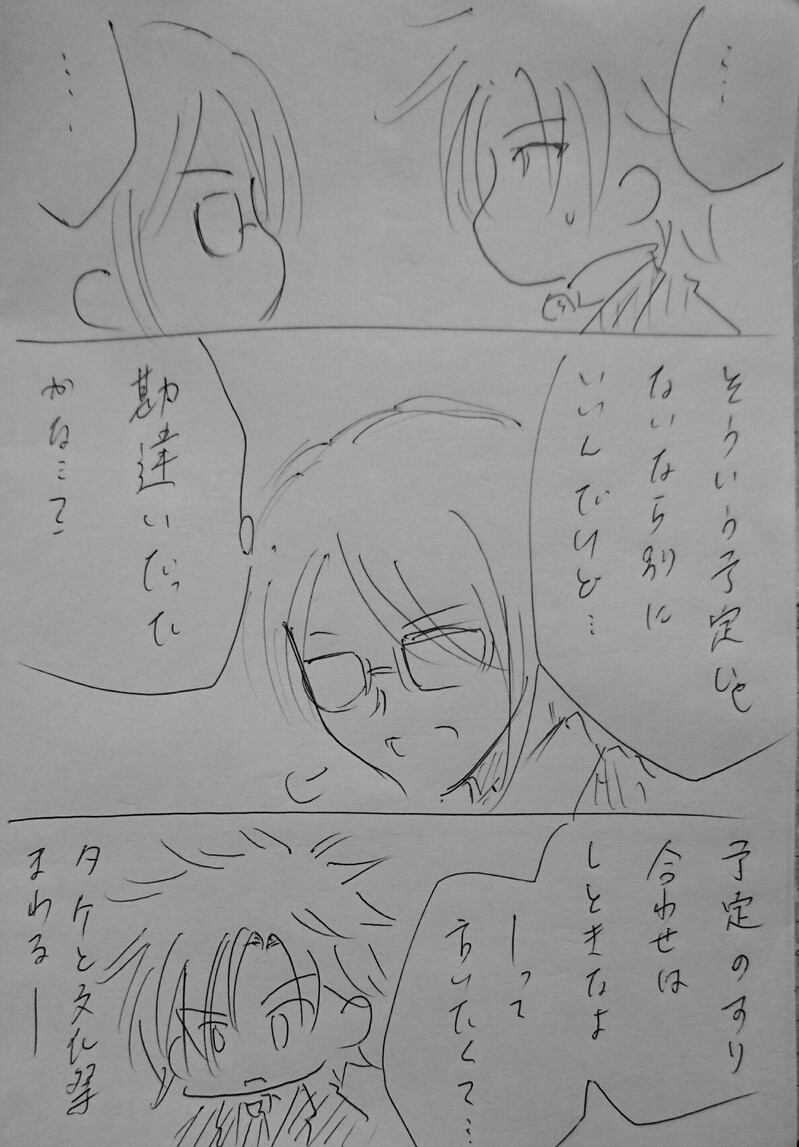 …
…
そういう予定じゃ
ないなら別に
いいんだけど…
勘違いだった
かな…って
予定のすり
合わせは
しときなよ
ーって
言いたくて…
タケと文化祭
まわるー